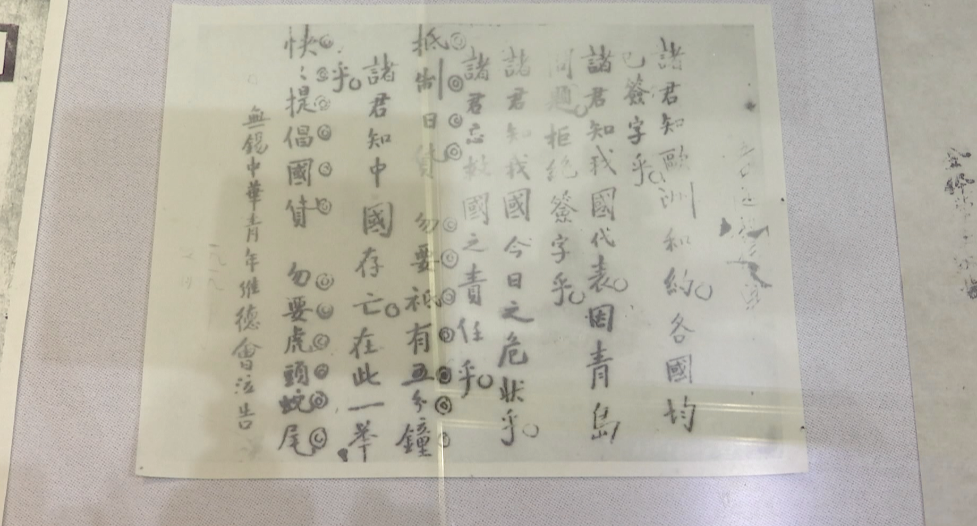 諸君知歐洲和約。各國均
已簽字乎。
諸君知我國代表。因青島
問題。拒絕簽字乎。
諸君知我國今日之危狀乎。
諸君忘救國之責任乎。
抵制日貨 勿要祇有五分鐘
諸君知中國存亡。在此一舉
乎。
快快提倡國貨 勿要虎頭蛇尾
無錫中華青年維德會泣告